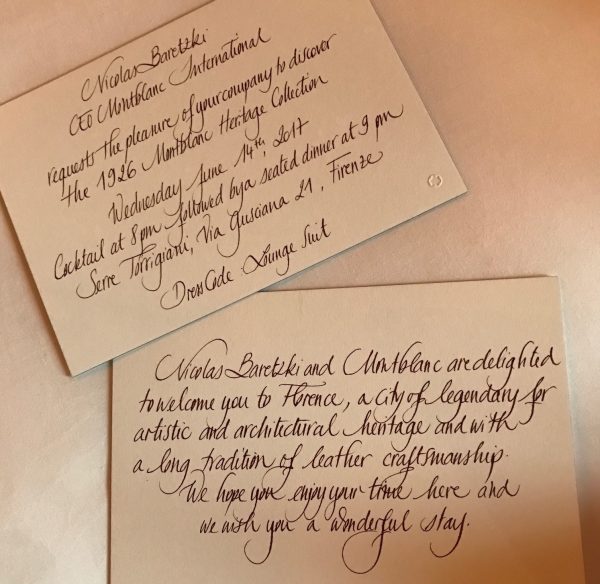 Nicolas Baretzki
CEO Montblanc International
requests the pleasure of your company to discover
the 1926 Montblanc Heritage Collection
Wednesday June 14th, 2017
Cocktail at 8 pm followed by a seated dinner at 9 pm
Serre Torrigiani, Via Gusciana 21, Firenze
Dress Code : Lounge Suit
Nicolas Baretzki and Montblanc are delighted
to welcome you to Florence, a city of legendary for
artistic and architectural heritage and with
a long tradition of leather craftsmanship.
We hope you enjoy your time here and
we wish you a wonderful stay.